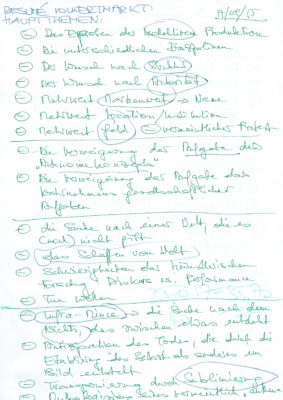 BESUCH VOLKERTMARKT:
HAUPTTHEMEN:
– Das Erproben der kollektiven Produktion
– Die unterschiedlichen Disziplinen
– Der Wunsch nach Struktur
– Der Wunsch nach Autorität
– Netzwert Markenwert → Name
– Netzwert Location/Institution
– Netzwert Geld → vermeintlicher Protest
– Die Verweigerung der Aufgabe des
"Autonomiekonzepts"
– Die Verweigerung der Aufgabe das
Wahrnehmen gesellschaftlicher
Aufgaben
– die Suche nach einer Welt, die es
(noch) nicht gibt
– das Schaffen von Welt
– Schwierigkeiten der künstlerischen
Forschung Diskurs vs. Performance
– Tun wollen
– Infra-Mince → die Suche nach dem
Nichts, das zwischen etwas entsteht
– Antizipation des Todes, die durch die
Etablierung des Selbst als anderes im
Bild entsteht
– Transponierung durch Sublimierung